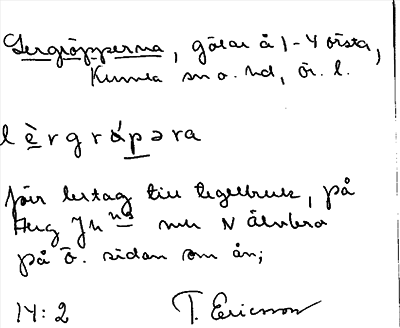 Lergröpperna, gölar å 1-4 Örsta,
Kumla sn o. hd, Ör. l.
lèrgrápəra
för lertag till tegelbruk, på
på Ö. sidan om ån;
14:2 T. Ericsson